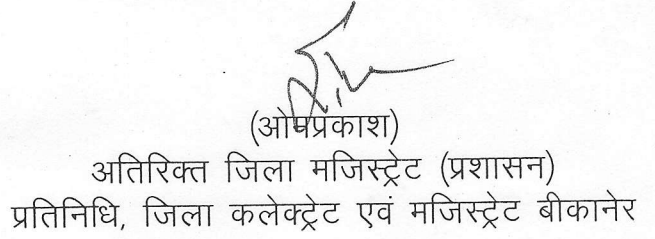 (ओमप्रकाश)
अतिरिक्त जिला मजिस्ट्रेट (प्रशासन)
प्रतिनिधि, जिला कलेक्ट्रेट एवं मजिस्ट्रेट बीकानेर